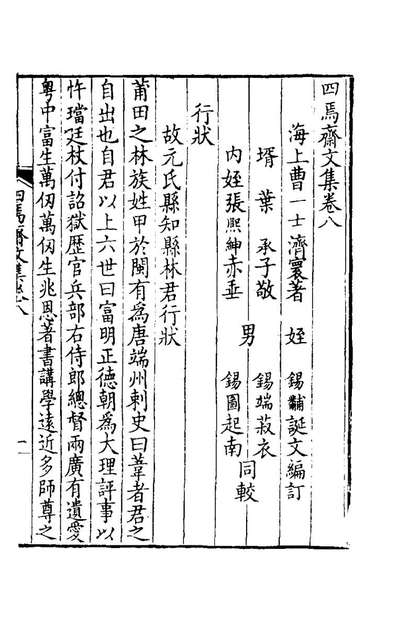 四焉齋文集卷八
海上曹一士濟寰著　姪　錫黼誕文編訂
壻　葉　承子敬　　錫端菽衣
男　　同較
內姪張熙紳赤垂　　錫圖起南
行狀
故元氏縣知縣林君行狀
莆田之林族姓甲於閩有爲唐端州刺史曰葦者君之
自出也自君以上六世曰富明正德朝爲大理評事以
忤璫廷杖付詔獄歷官兵部右侍郎總督兩廣有遺愛
粵中富生萬仞萬仞生兆恩著書講學遠近多師尊之
四焉齋文集卷八　　一